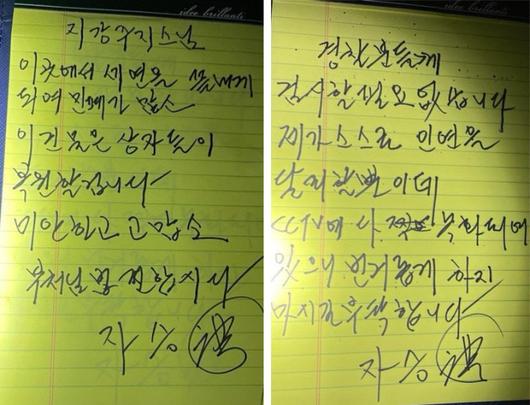 idee brillante
지강주지스님
이곳에서 세연을 끝내게
되어 민폐가 많소
이 건물은 상자들이
복원할겁니다
미안하고 고맙소
부처님법 전합시다
자승
idee brillante
경찰분들께
검시할 필요 없습니다
제가 스스로 인연을
달리할 뿐이데
CCTV에 다 녹화되어
있으니 번거롭게 하지
마시길 부탁합니다
자승